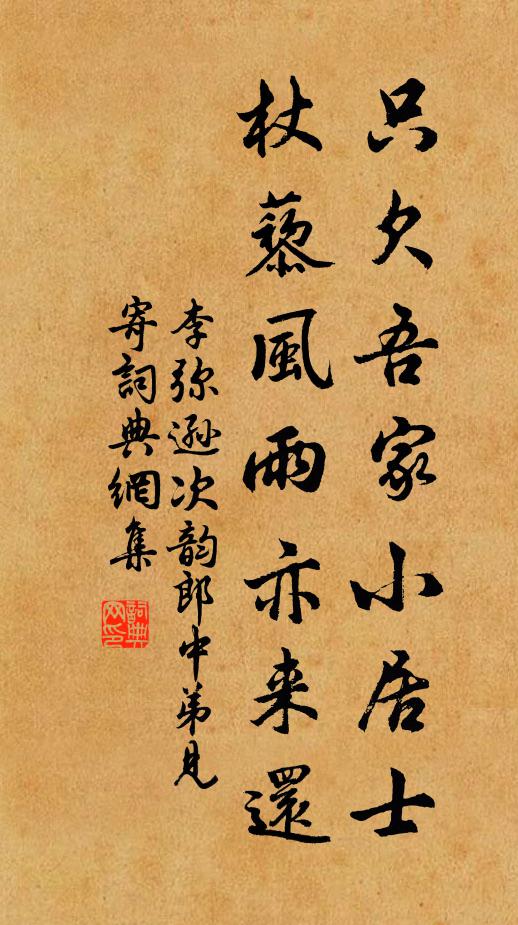 只欠吾家小居士
杖藜風雨亦来還
李弥遜次韵郎中弟見
寄詞典網集
詞典网印